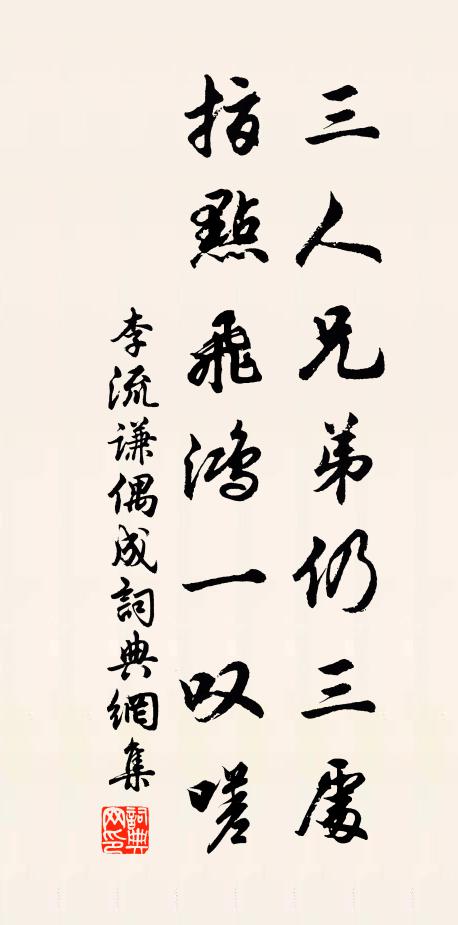 三人兄弟仍三處
指點飛鴻一叹嗟
李流謙偶成詞典網集
詞典网印